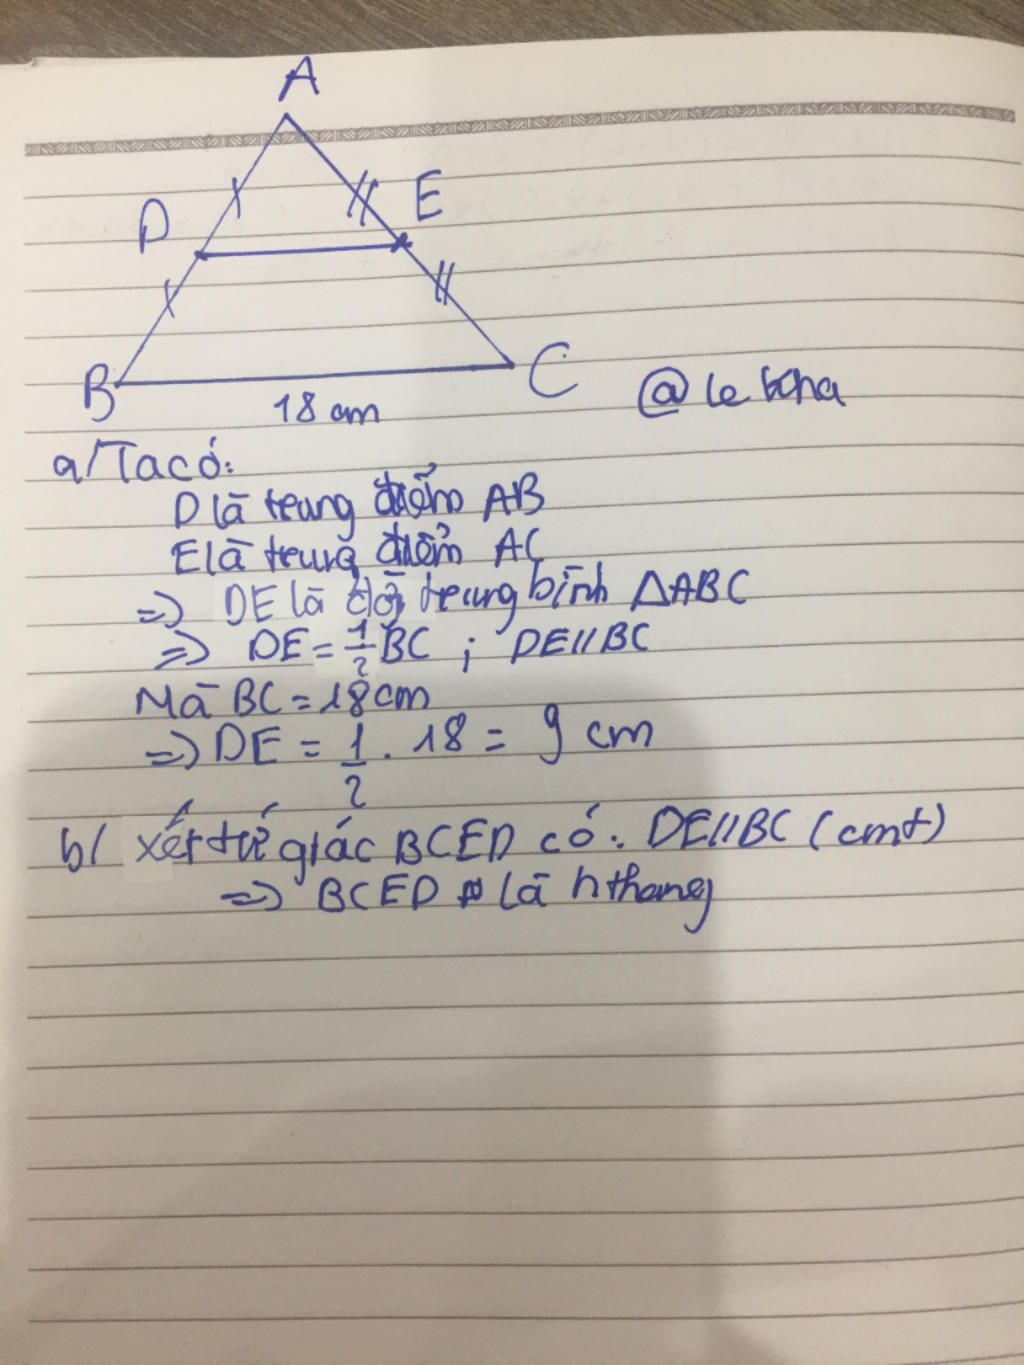 A
D
E
B
C
18 cm
@le kha
a/ Ta có:
D là trung điểm AB
E là trung điểm AC
=> DE là đg trung bình ΔABC
=> DE = 1/2 BC ; DE // BC
Mà BC = 18 cm
=> DE = 1/2 . 18 = 9 cm
b/ xét tứ giác BCED có: DE // BC (cmt)
=> BCED là hthang